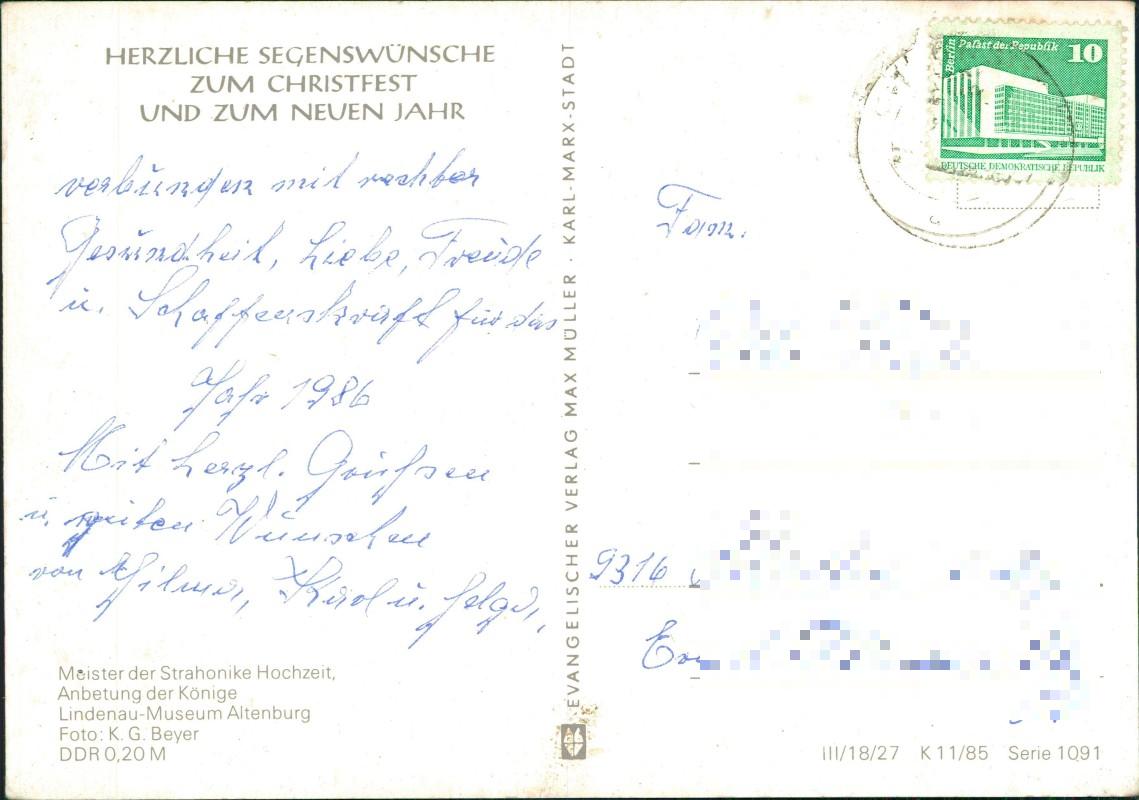 HERZLICHE SEGENSWÜNSCHE
ZUM CHRISTFEST
UND ZUM NEUEN JAHR
verbunden mit
Gesundheit, Liebe, Freude
u. Schaffenskraft für das
Jahr 1986
Mit herzl. Grüßen
u. guten Wünschen
von Hilma, Karl u. Helga,
Meister der Strahonike Hochzeit,
Anbetung der Könige
Lindenau-Museum Altenburg
Foto: K. G. Beyer
DDR 0,20 M
EVANGELISCHER VERLAG MAX MÜLLER · KARL-MARX-STADT
Berlin
Palast der Republik
10
DEUTSCHE DEMOKRATISCHE REPUBLIK
Fam.
9316
III/18/27 K 11/85 Serie 1091